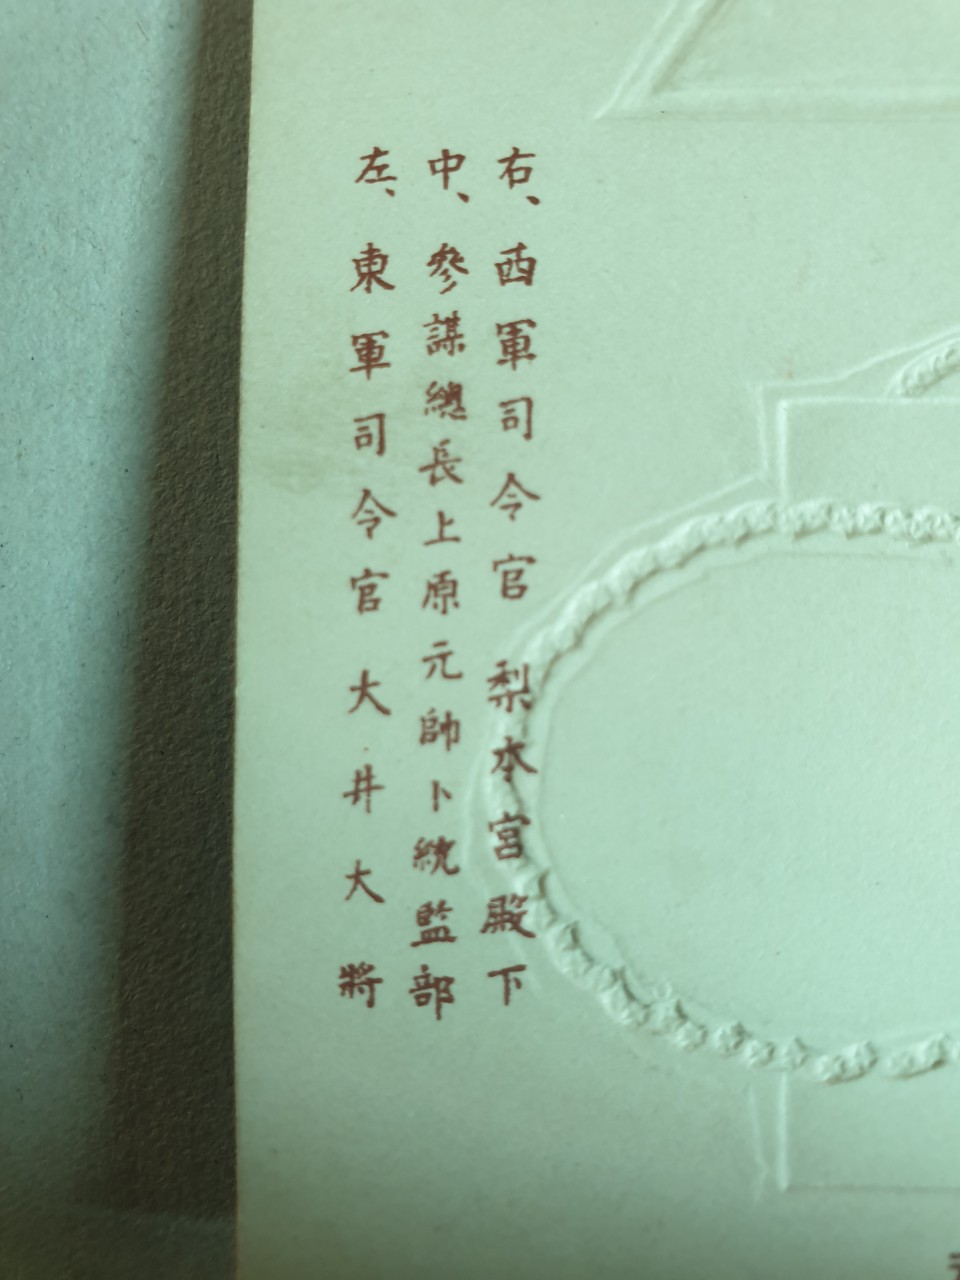 右、西軍司令官 梨本宮殿下
中、參謀總長上原元帥ト統監部
左、東軍司令官 大井大將